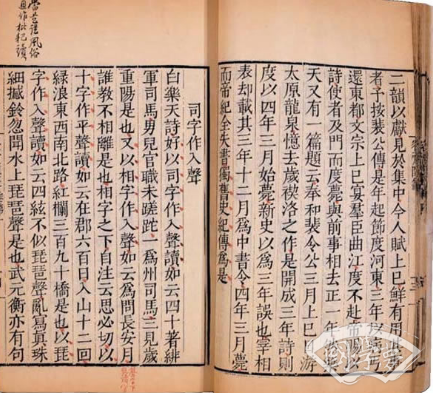 二韻以獻見於集中今人賦上巳鮮有用
者予按裴公傳是年起節度河東三年以
還東都文宗上巳宴羣臣曲江度不赴帝賜
詩使者及門而度薨與前事相去正一年
天又有一篇題云奉和裴令公三月上巳日游
太原龍泉憶去歲禊洛之作是開成三年詩則
度以四年三月始薨新史以為三年誤也宰相
表却載其三年十二月為中書令四年三月薨
而帝紀全失書獨舊史紀傳為是
司字作入聲
白樂天詩好以司字作入聲讀如云四十著緋
軍司馬男兒官職未蹉跎一為州司馬三見歲
重陽是也又以相字作入聲如云為問長安月
誰教不相離是也相字之下自注云思必切以
十字作平聲讀如云在郡六百日入山十二回
綠浪東西南北路紅欄三百九十橋是也以琵
字作入聲讀如云四絃不似琵琶聲亂寫真珠
細撼鈴忽聞水上琵琶聲是也武元衡亦有句